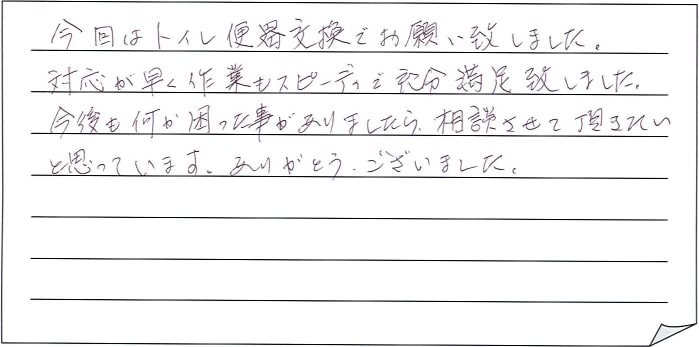 今回はトイレ便器交換でお願い致しました。
対応が早く作業もスピーディで充分満足致しました。
今後も何か困った事がありましたら、相談させて頂きたい
と思っています。ありがとう、ございました。